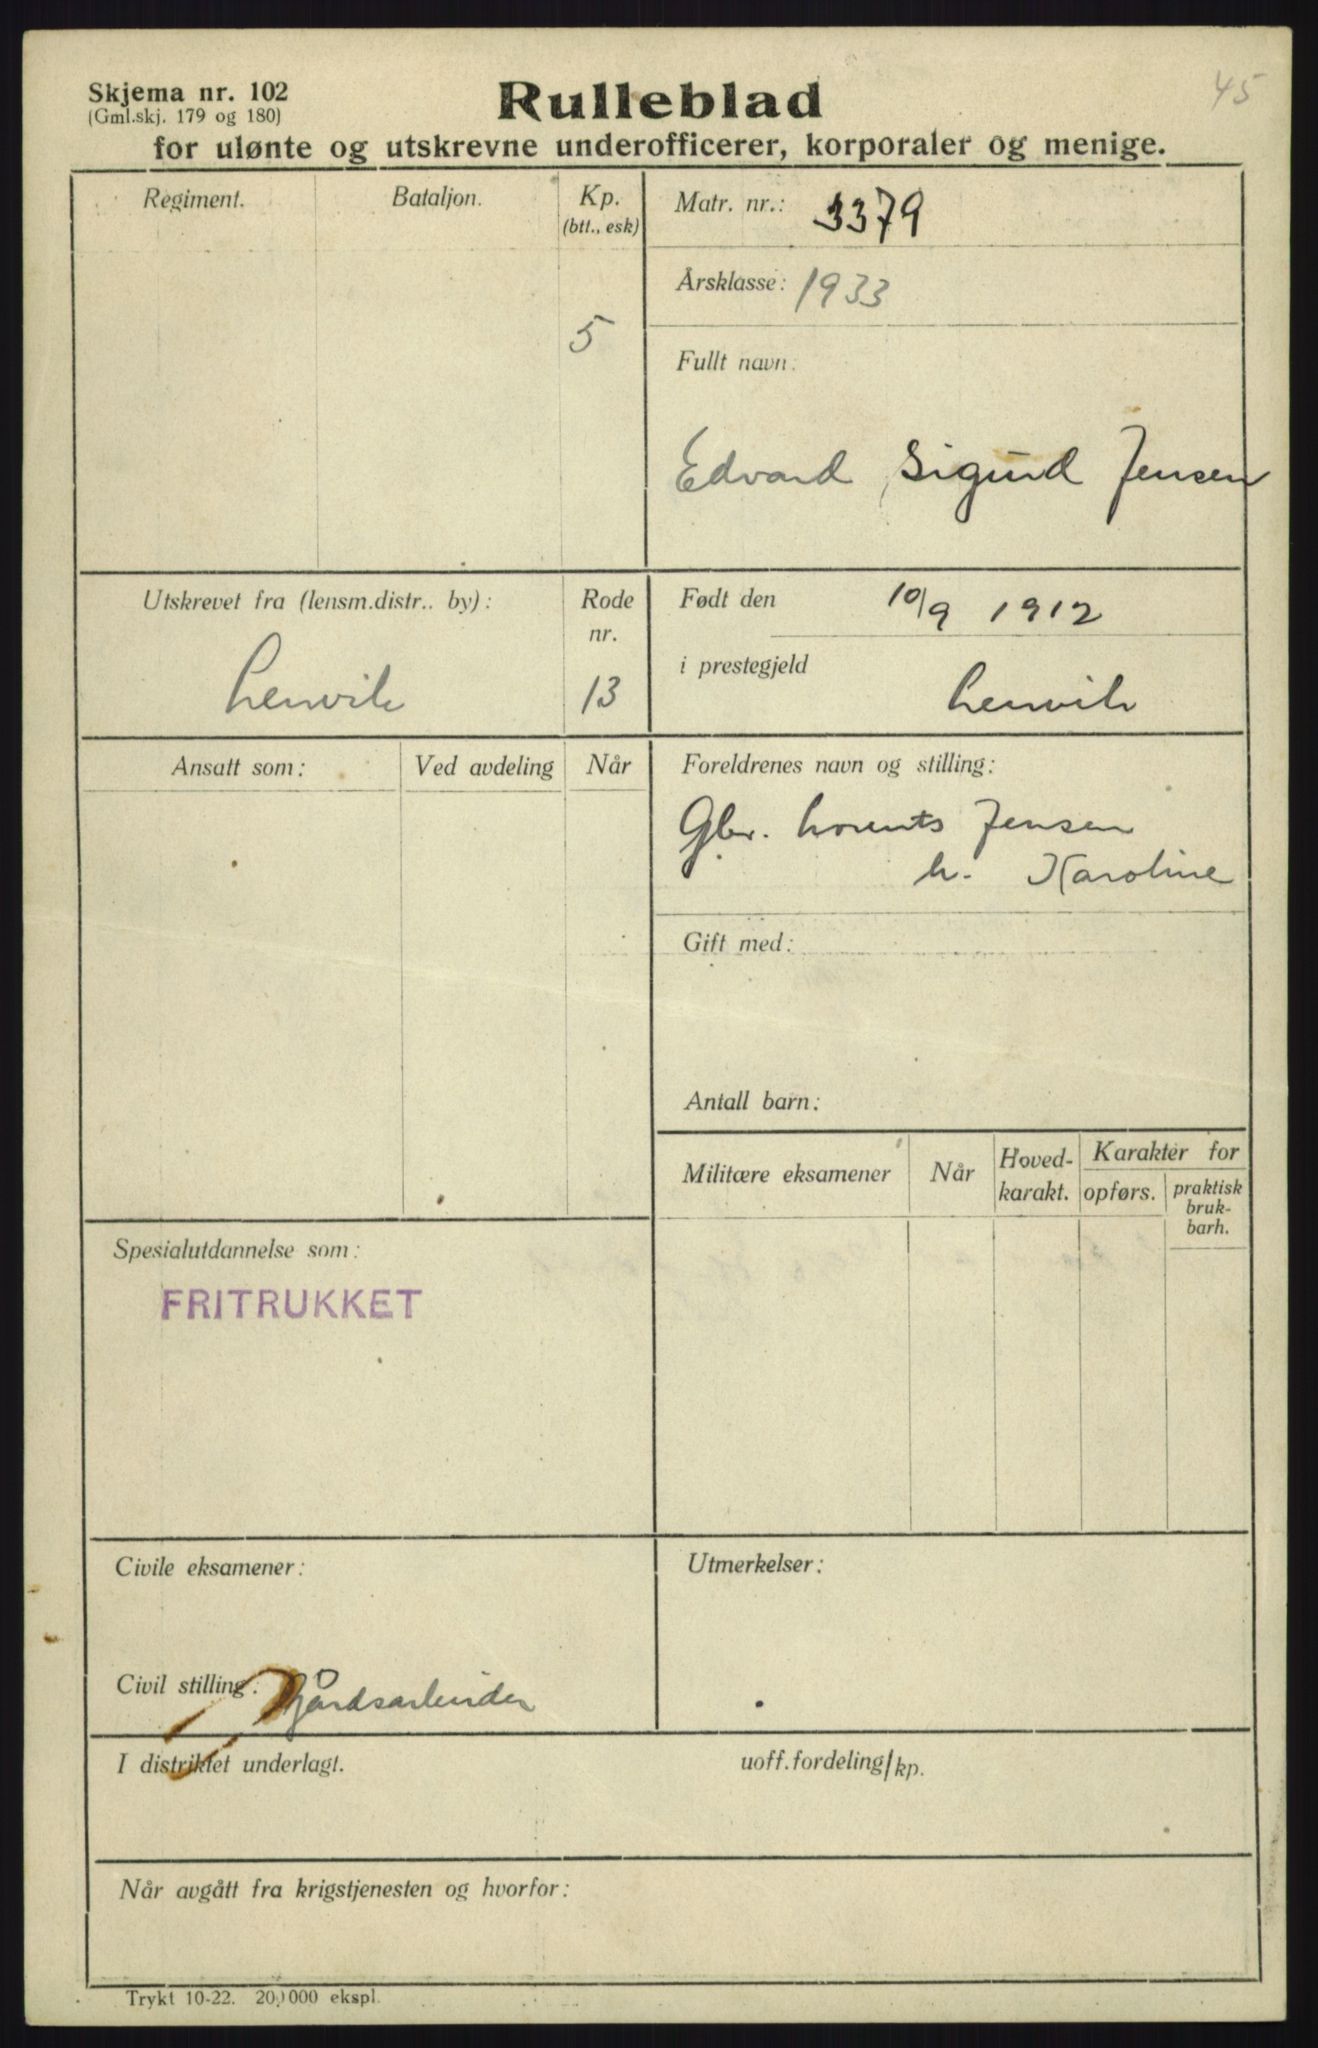 45
Skjema nr. 102
(Gml.skj. 179 og 180)
Rulleblad
for ulønte og utskrevne underofficerer, korporaler og menige.
Regiment.
Bataljon.
Kp.
(btt., esk)
5
Matr. nr.: 3379
Årsklasse: 1933
Fullt navn:
Edvard Sigurd Jensen
Utskrevet fra (lensm.distr.. by):
Lenvik
Rode
nr.
13
Født den 10/9 1912
i prestegjeld
Lenvik
Ansatt som:
Ved avdeling
Når
Foreldrenes navn og stilling:
Gbr. Lorents Jensen
h. Karoline
Gift med:
Antall barn:
Militære eksamener
Når
Hoved-
karakt.
Karakter for
opførs.
praktisk
bruk-
barh.
Spesialutdannelse som:
FRITRUKKET
Civile eksamener:
Utmerkelser:
Civil stilling: Gårdsarbeider
I distriktet underlagt.
uoff.fordeling/kp.
Når avgått fra krigstjenesten og hvorfor:
Trykt 10-22. 20,000 ekspl.